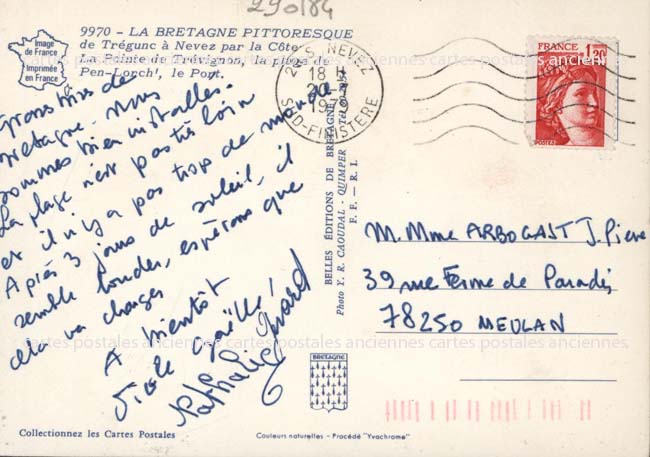 290184
Image
de France
Imprimée
en France
9970 - LA BRETAGNE PITTORESQUE
de Trégunc à Nevez par la Côte
La Pointe de Trévignon, la plage de
Pen-Lorch', le Port.
Gros bises de
Bretagne. Nous
sommes bien installés.
La plage n'est pas très loin
et il n'y a pas trop de monde
Après 3 jours de soleil, il
semble bouder, espérons que
cela va changer
A bientôt
Gaëlle,
Nathalie
29 S. NEVEZ
18 H
S.D-FINISTERE
FRANCE
1,20
POSTES
BELLES ÉDITIONS DE BRETAGNE
Photo Y. R. CAOUDAL - QUIMPER
F. F. - R. I.
M. Mme ARBOGAST J. Pierre
39 rue Ferme de Paradis
78250 MEULAN
BRETAGNE
Collectionnez les Cartes Postales
Couleurs naturelles - Procédé "Yvachrome"
cartes postales anciennes